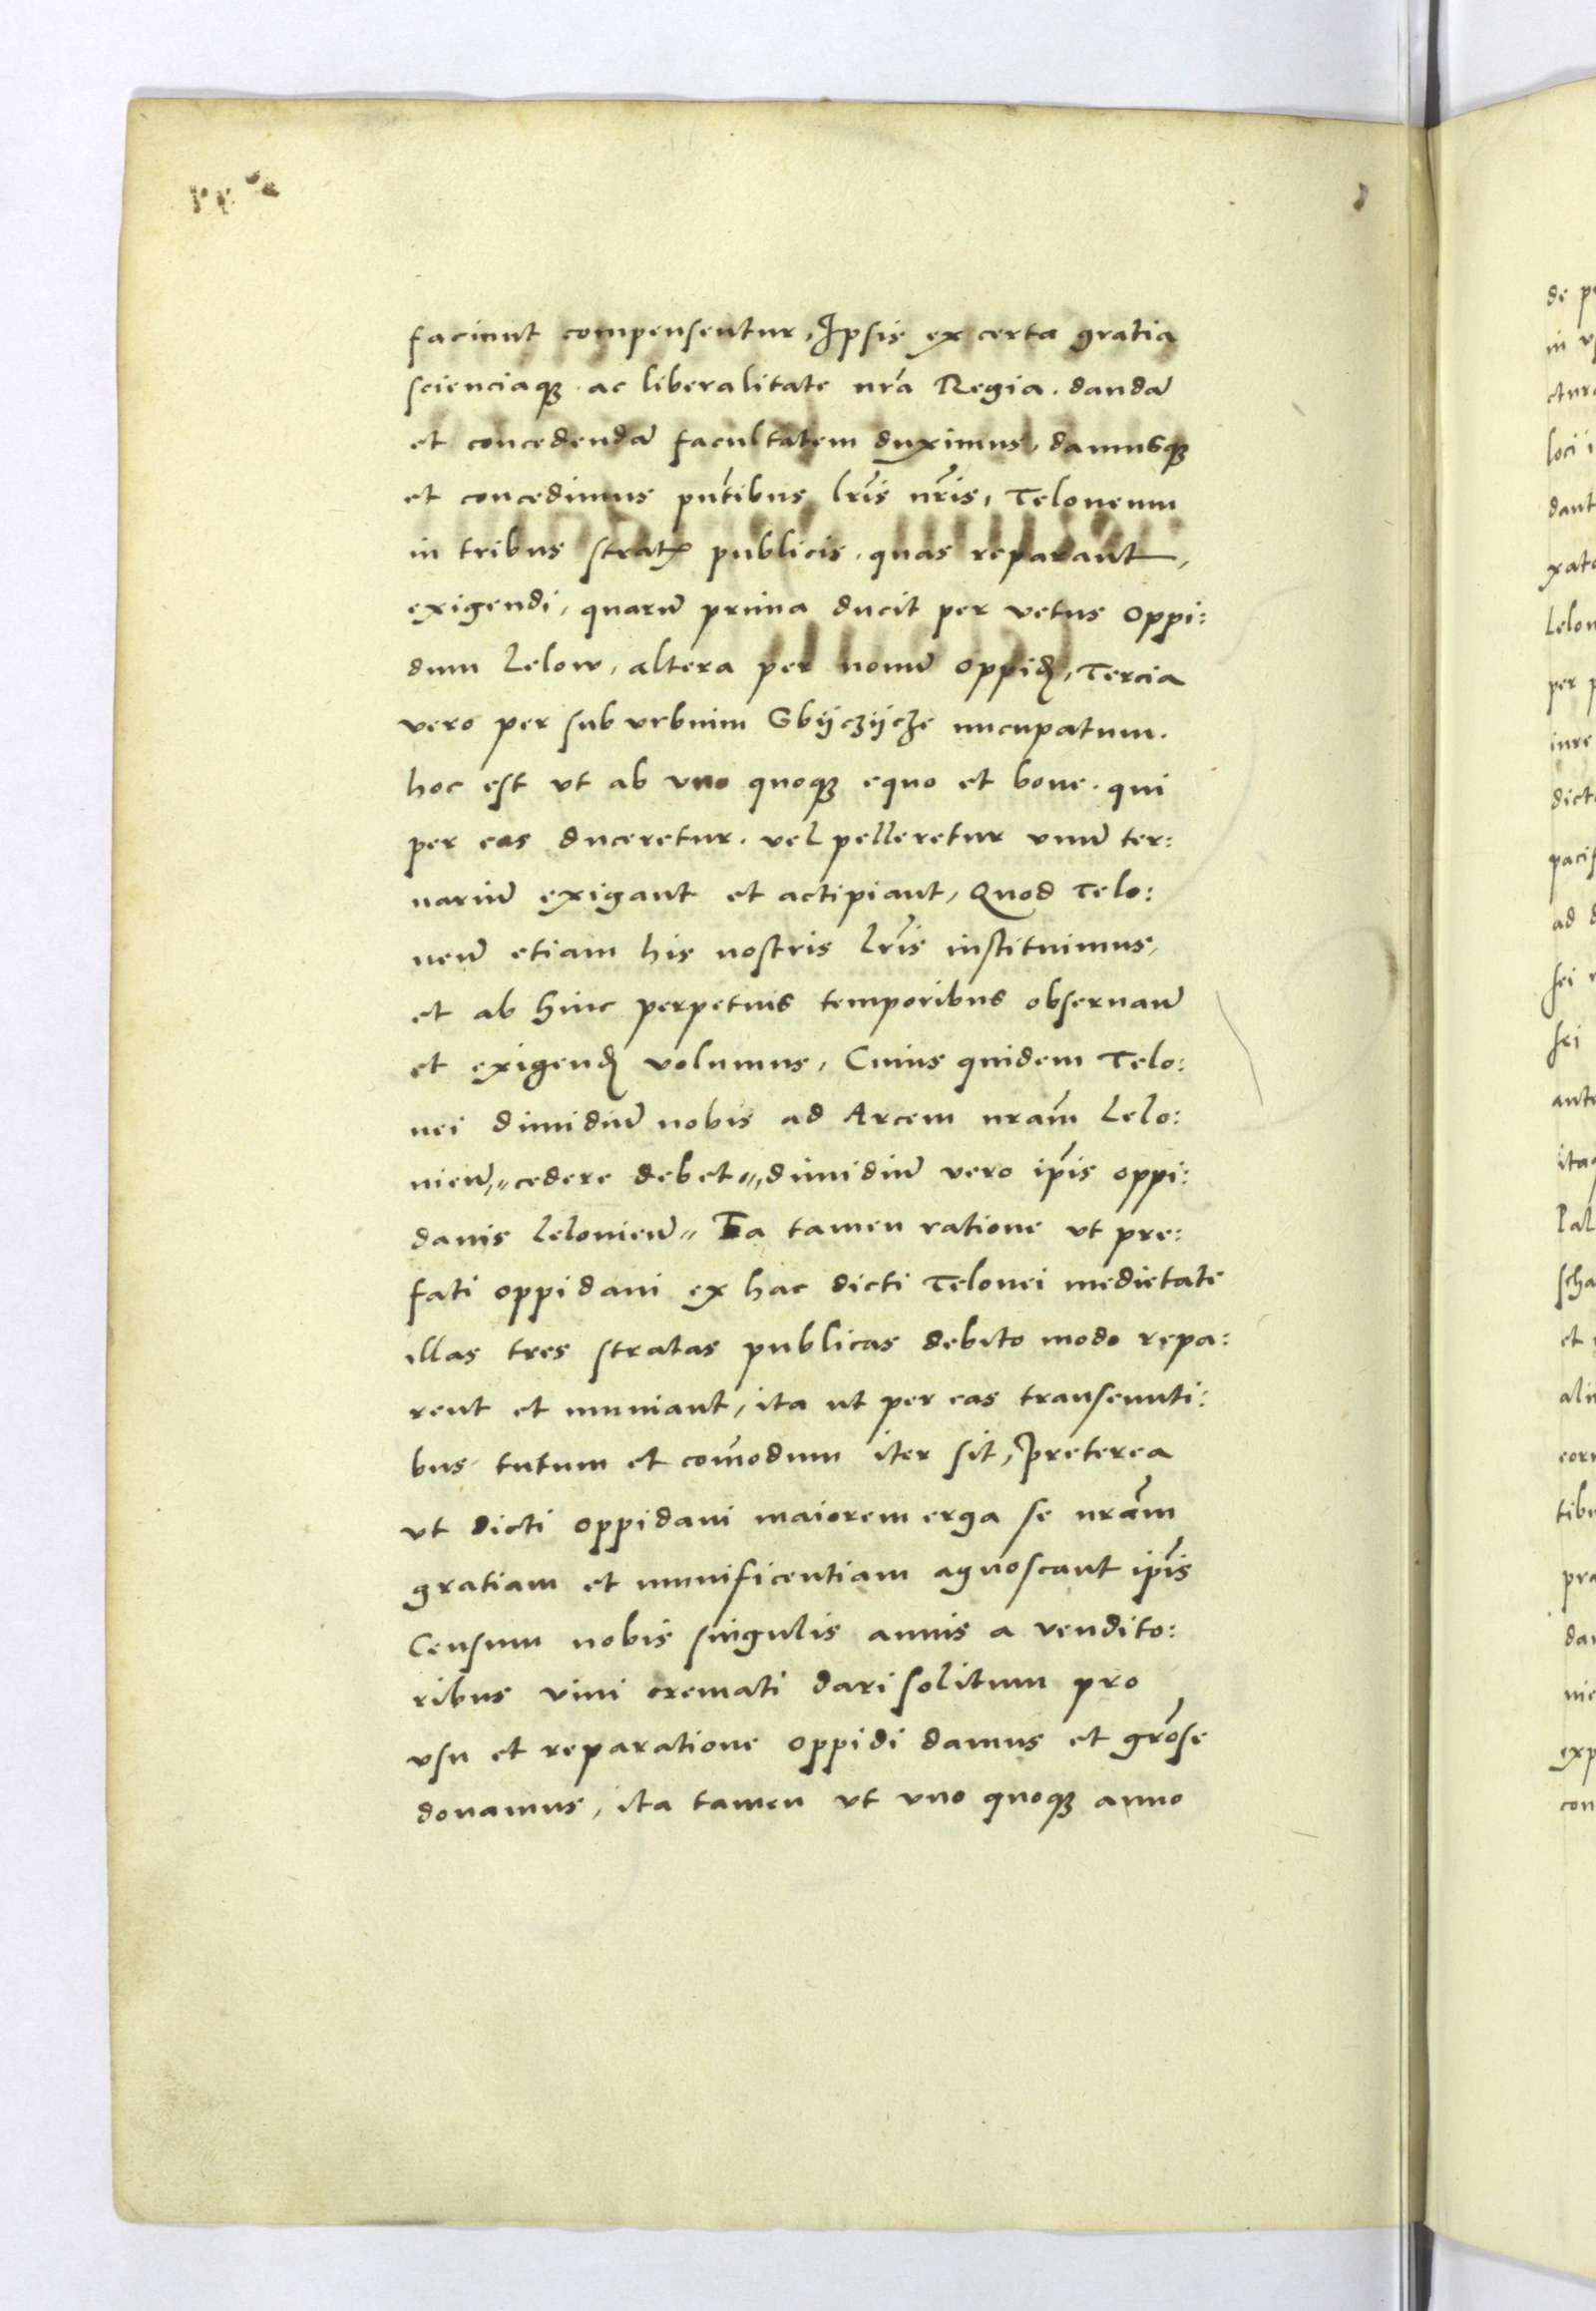 faciunt compensentur, Ipsis ex certa gratia
scienciaqꝫ ac liberalitate nr̃a Regia. dandã
et concedendã facultatem duximus, damusqꝫ
et concedimus pñtibus lr̃is nr̃is, Teloneum
in tribus stratꝭ publicis, quas reparant,
exigendi, quarũ prima ducit per vetus oppi:
dum Lelow, altera per nouũ oppidꝭ, Tercia
vero per suburbuim Gbÿczÿcze nucupatum.
hoc est vt ab vno quoqꝫ equo et boue. qui
per eas duceretur. vel pelleretur vnũ ter:
nariũ exigant et actipiant, Quod Telo:
neũ etiam his nostris lr̃is instituimus,
et ab hinc perpetuis temporibus obseruañ
et exigendꝭ volumus, Cuius quidem Telo:
nei dimidiũ nobis ad Arcem nrãm Lelo:
uieñ, cedere debet, dimidiũ vero ip̃is oppi:
danis Lelouieñ Ea tamen ratione vt pre:
fati oppidani ex hac dicti Telonei medietate
illas tres stratas publicas debito modo repa:
rent et muniant, ita ut per eas transeunti:
bus tutum et com̃odum iter sit, Preterea
vt dicti oppidani maiorem erga se nrãm
gratiam et munificentiam agnoscant ip̃is
Censum nobis singulis annis a vendito:
ribus vini cremati dari solitum pro
vsu et reparatione oppidi damus et grõse
donamus, ita tamen vt vno quoqꝫ anno